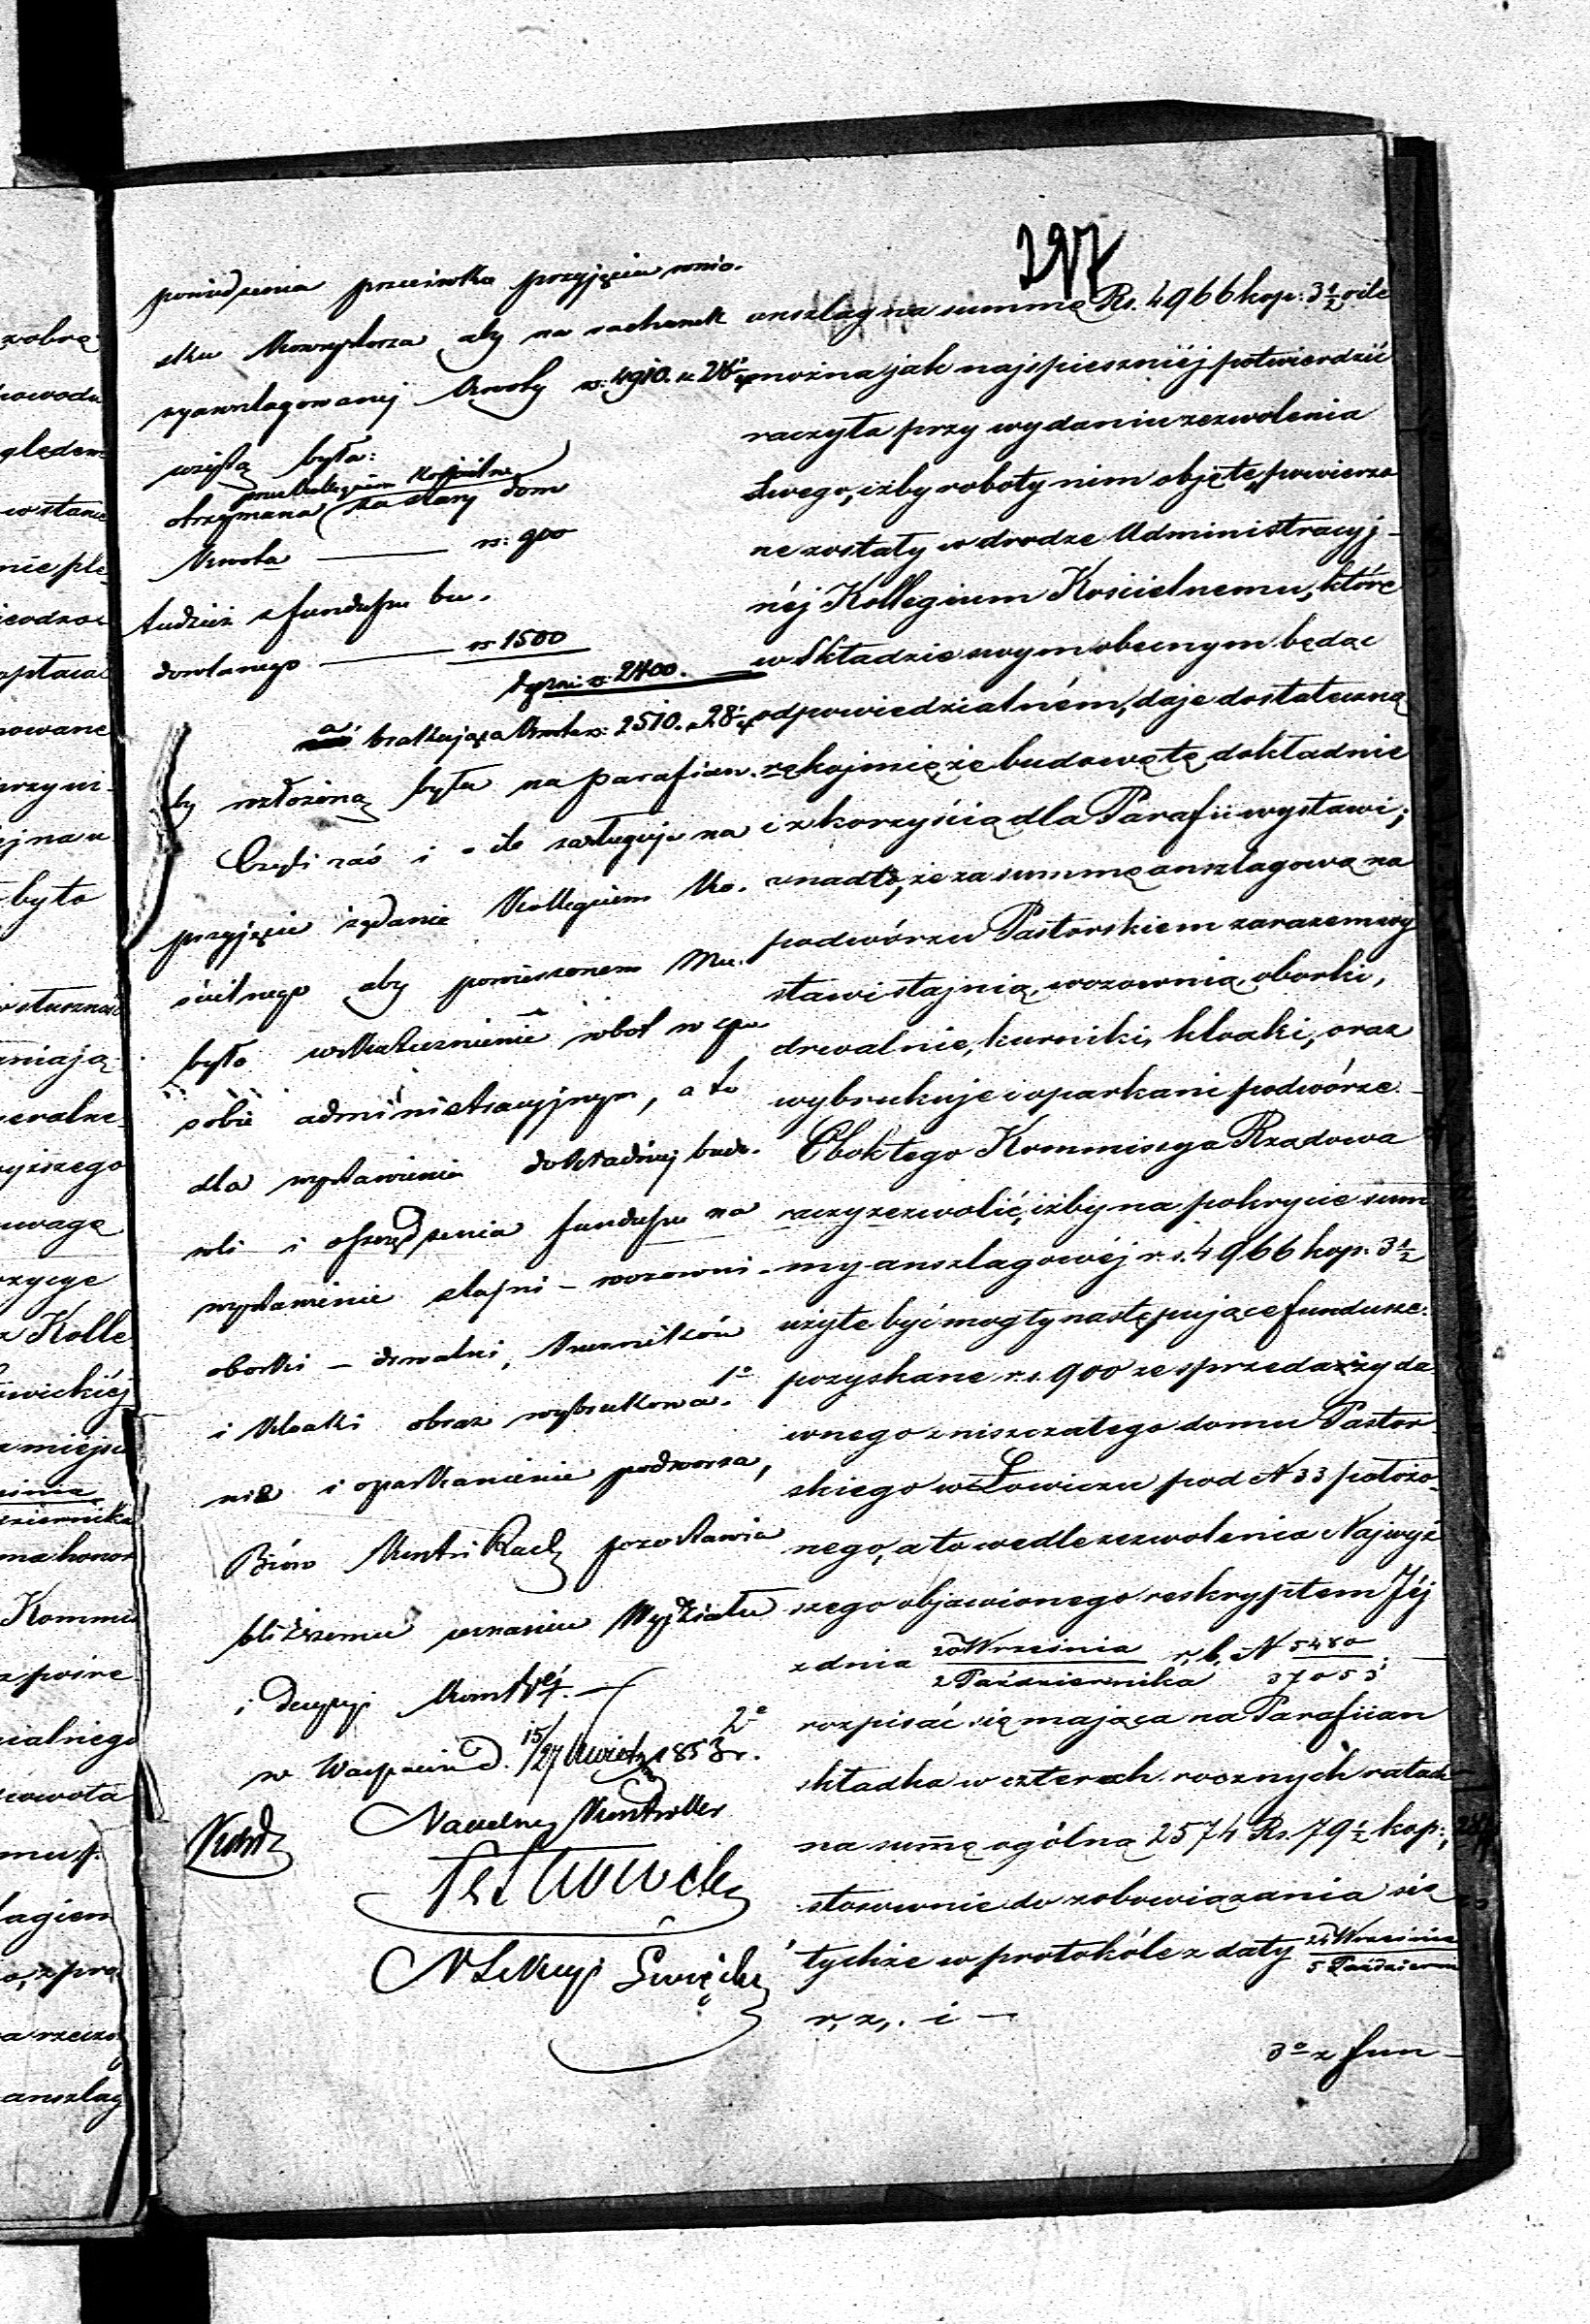 297
powiedzenia przeciwko przyjęciu wnio-
sku Konsystorza aby na rachunek
wyanszlagowanej kwoty rs: 4910. k 28½
wziętą była:
przez Kollegium Kościelne
otrzymana za stary dom
kwota — rs: 900
tudzież z funduszu bu-
dowlanego — rs 1500
czyli rs: 2400.
a brakująca kwota rs: 2510. k 28½
by rozłożoną była na parafian.
Czyli zaś i o ile zasługuje na
przyjęcie żądanie Kollegium Ko-
ścielnego aby powierzonem mu
było uskutecznienie robot w spo-
sobie administracyjnym, a to
dla wystawienia dokładnej budo-
wli i oszczędzenia funduszu na
wystawienie stajni – wozowni –
oborki – drwalni, kurników
i kloaki obraz wybrukowa-
nie i oparkanienie podworza,
Biuro Kontroli Rach pozostawia
bliższemu uznaniu Wydziału
i Decyzyi
w Warszawie d. 15/27 Kwietn 1853 r.
Naczelny Kontroller
N Sekcyi Święcki
anszlag na summę Rs. 4966 kop: 3½ o ile
można jak najspieszniéj potwierdzić
raczyła przy wydaniu zezwolenia
Swego, iżby roboty nim objęte, powierzo
ne zostały w drodze Administracyj-
néj Kollegium Kościelnemu, które
w Składzie swym obecnym będąc
odpowiedzialném, daje dostateczną
rękojmię że budowę tę dokładnie
i z korzyścią dla Parafii wystawi;
a nadto, że za summę anszlagową na
podwórzu Pastorskiem zarazem wy
stawi stajnią, wozownią, oborki,
drwalnie, kurniki, kloaki, oraz
wybrukuje i oparkani podwórze.–
Obok tego Kommissya Rządowa
raczy zezwolić, iżby na pokrycie sum
my anszlagowéj r.s. 4966 kop. 3½
użyte być mogły następujące fundusze.
1º pozyskane r.s. 900 ze sprzedaży da
wnego zniszczałego domu Pastor-
skiego w Łowiczu pod N 33 położo-
nego, a to wedle zezwolenia Najwyż
szego objawionego reskryptem Jéj
z dnia 20 Września / 2 Października r. b. N 5480 / 37053; —
2º rozpisać się mająca na Parafiian
składka w czterech rocznych ratach
na summę ogólną 2574 Rs. 79½ kop:,
stosownie do zobowiązania się
tychże w protokóle z daty 23 Września / 5 Październi
r. z. i —
3º z fun-